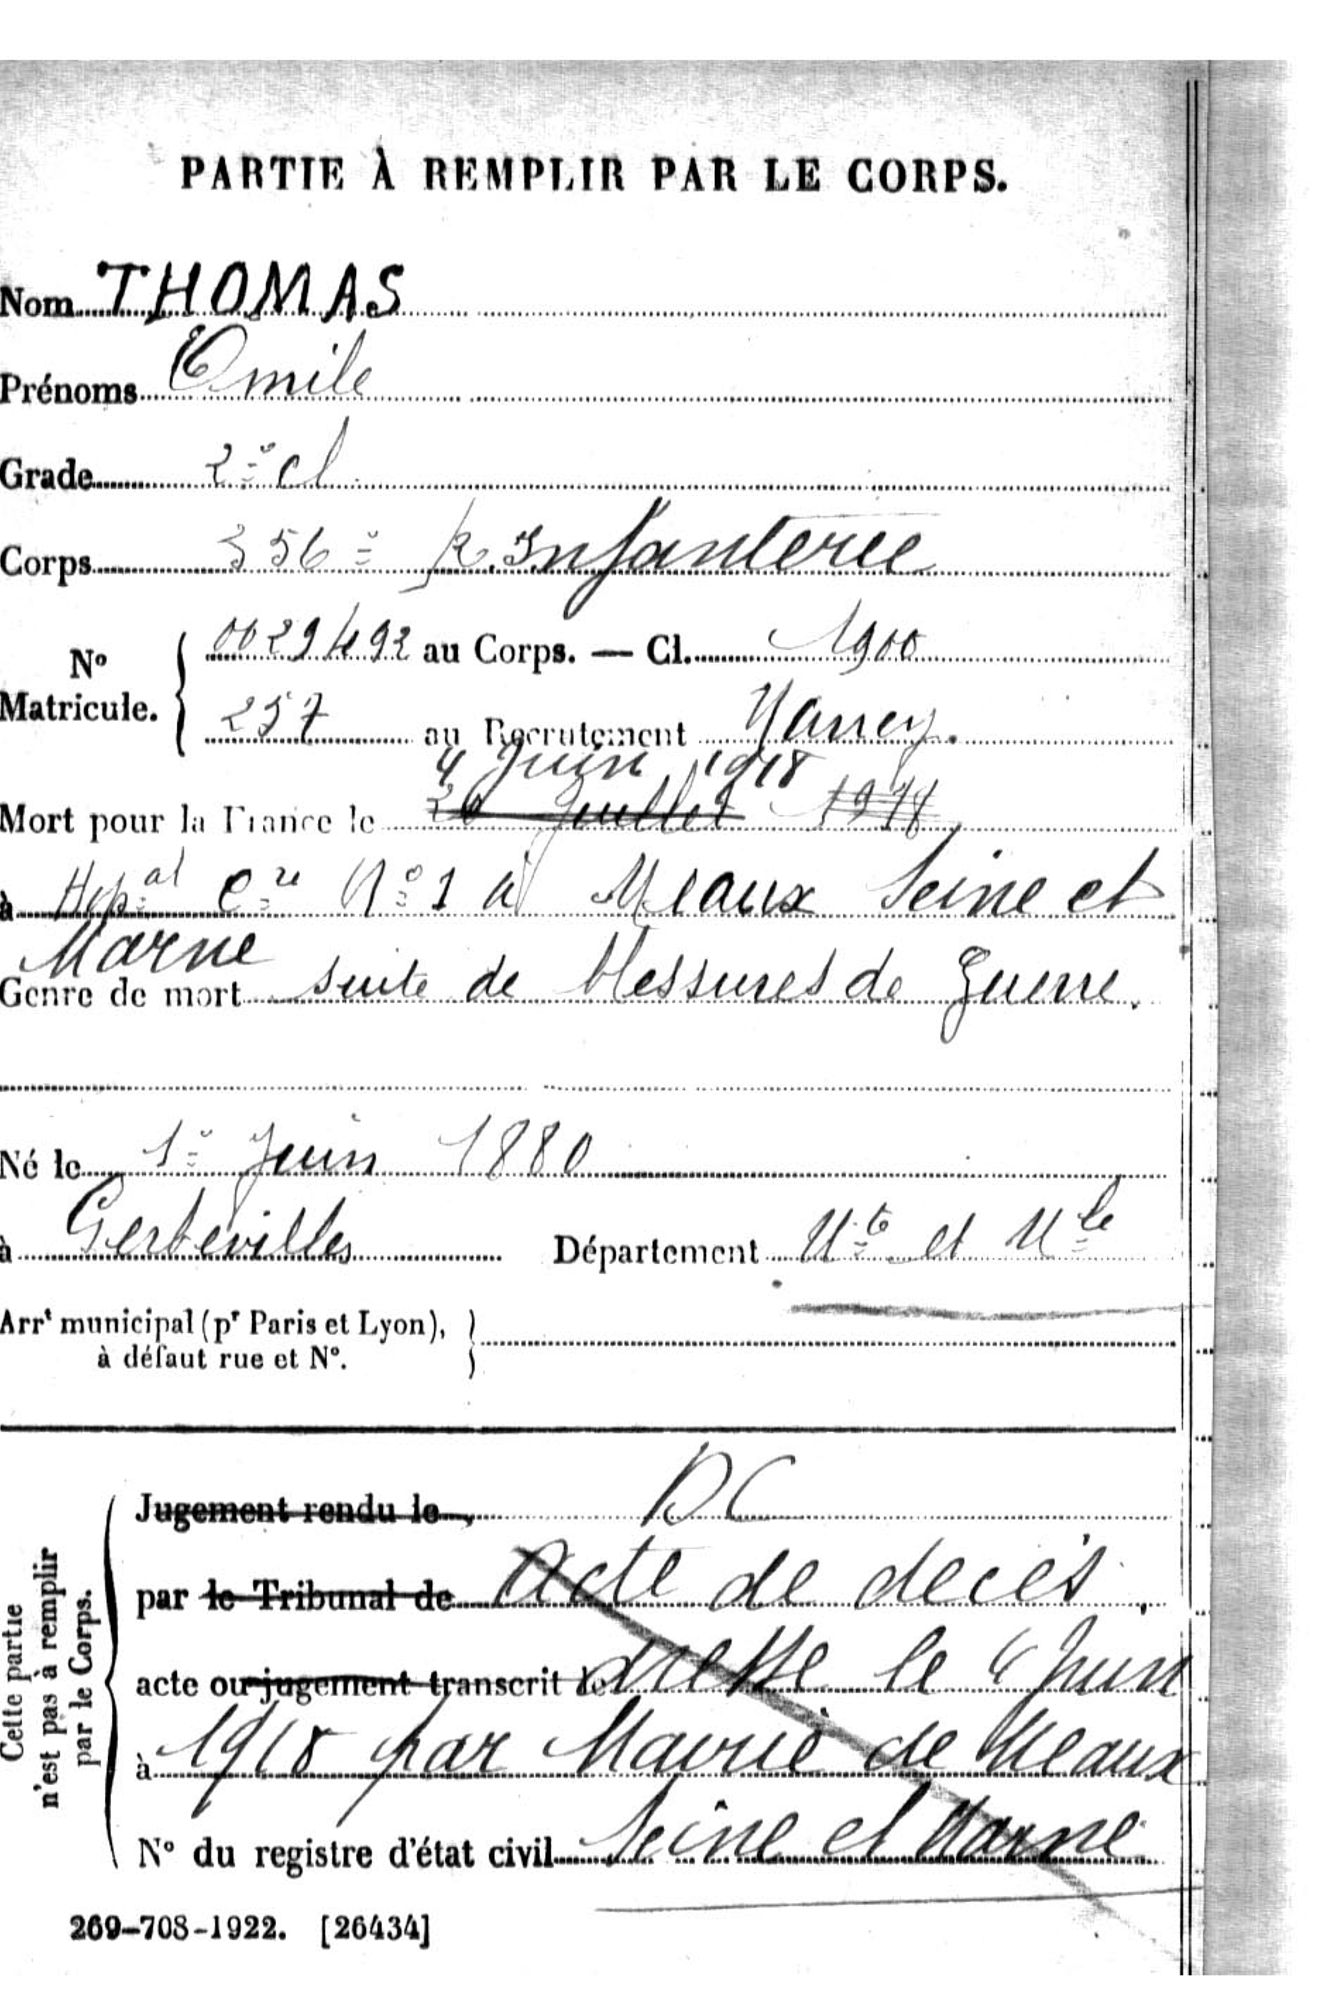 PARTIE À REMPLIR PAR LE CORPS.
Nom THOMAS
Prénoms Emile
Grade 2e cl
Corps 356e R. Infanterie
No Matricule. { 0029492 au Corps. — Cl. 1900
257 au Recrutement Nancy.
4 Juin 1918
Mort pour la France le 20 Juillet 1918
à Hopal Cre No 1 à Meaux Seine et
Marne
Genre de mort suite de blessures de Guerre.
Né le 1e Juin 1880
à Gerbévilles Département Mthe et Mlle
Arrt municipal (pr Paris et Lyon),
à défaut rue et No.
Cette partie
n'est pas à remplir
par le Corps.
Jugement rendu le DC
par le Tribunal de Acte de decès
acte ou jugement transcrit le dressé le 4 Juin
à 1918 par Mairie de Meaux
No du registre d'état civil Seine et Marne
269-708-1922. [26434]